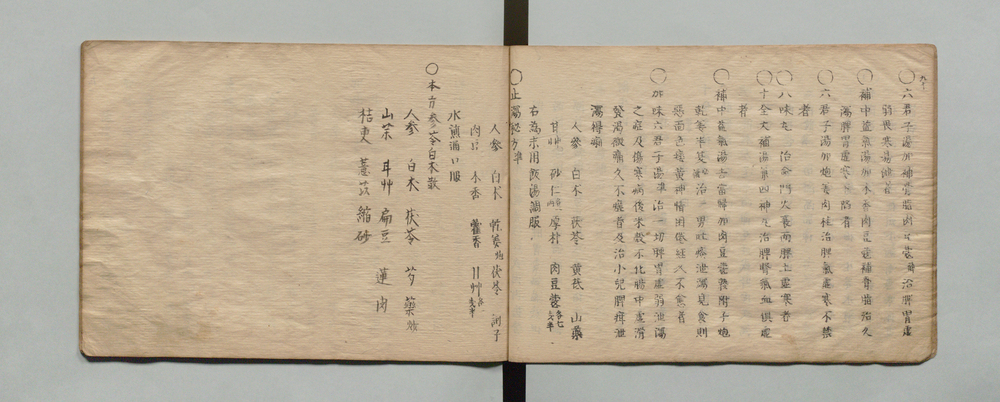 〇六君子湯加補骨脂肉豆蔲 治脾胃虚
弱畏寒泄
〇補中益氣湯加木香肉豆蔲補骨脂治久
瀉脾胃虚寒
〇六君子湯加炮姜肉桂治脾氣虚寒不禁
者
〇八味丸 治命門火衰而脾土虚寒者
〇十全大補湯 四神丸治脾腎氣血俱虚
者
〇補中益氣湯 加肉豆蔲 附子炮
乾姜半夏 治一男吐 泄瀉見食則
惡面色痿黄神情困倦
〇加味六君子湯 治一切脾胃虚弱泄瀉
之症及傷寒病後米穀不化腸中虚滑
發渴微痛久不瘥者及治小児脾疳泄
瀉得痢
人參 白朮 茯苓 黄茋 山藥
甘艸 砂仁 厚朴 肉豆蔲
右為末用飯湯調服
〇止瀉
人參 白朮 乾姜炮 茯苓 訶子
肉 木香 藿香 甘艸
水煎滴口服
〇本方參苓白朮散
人參 白朮 茯苓 芍藥
山茱 甘艸 扁豆 蓮肉
桔更 薏苡 縮砂